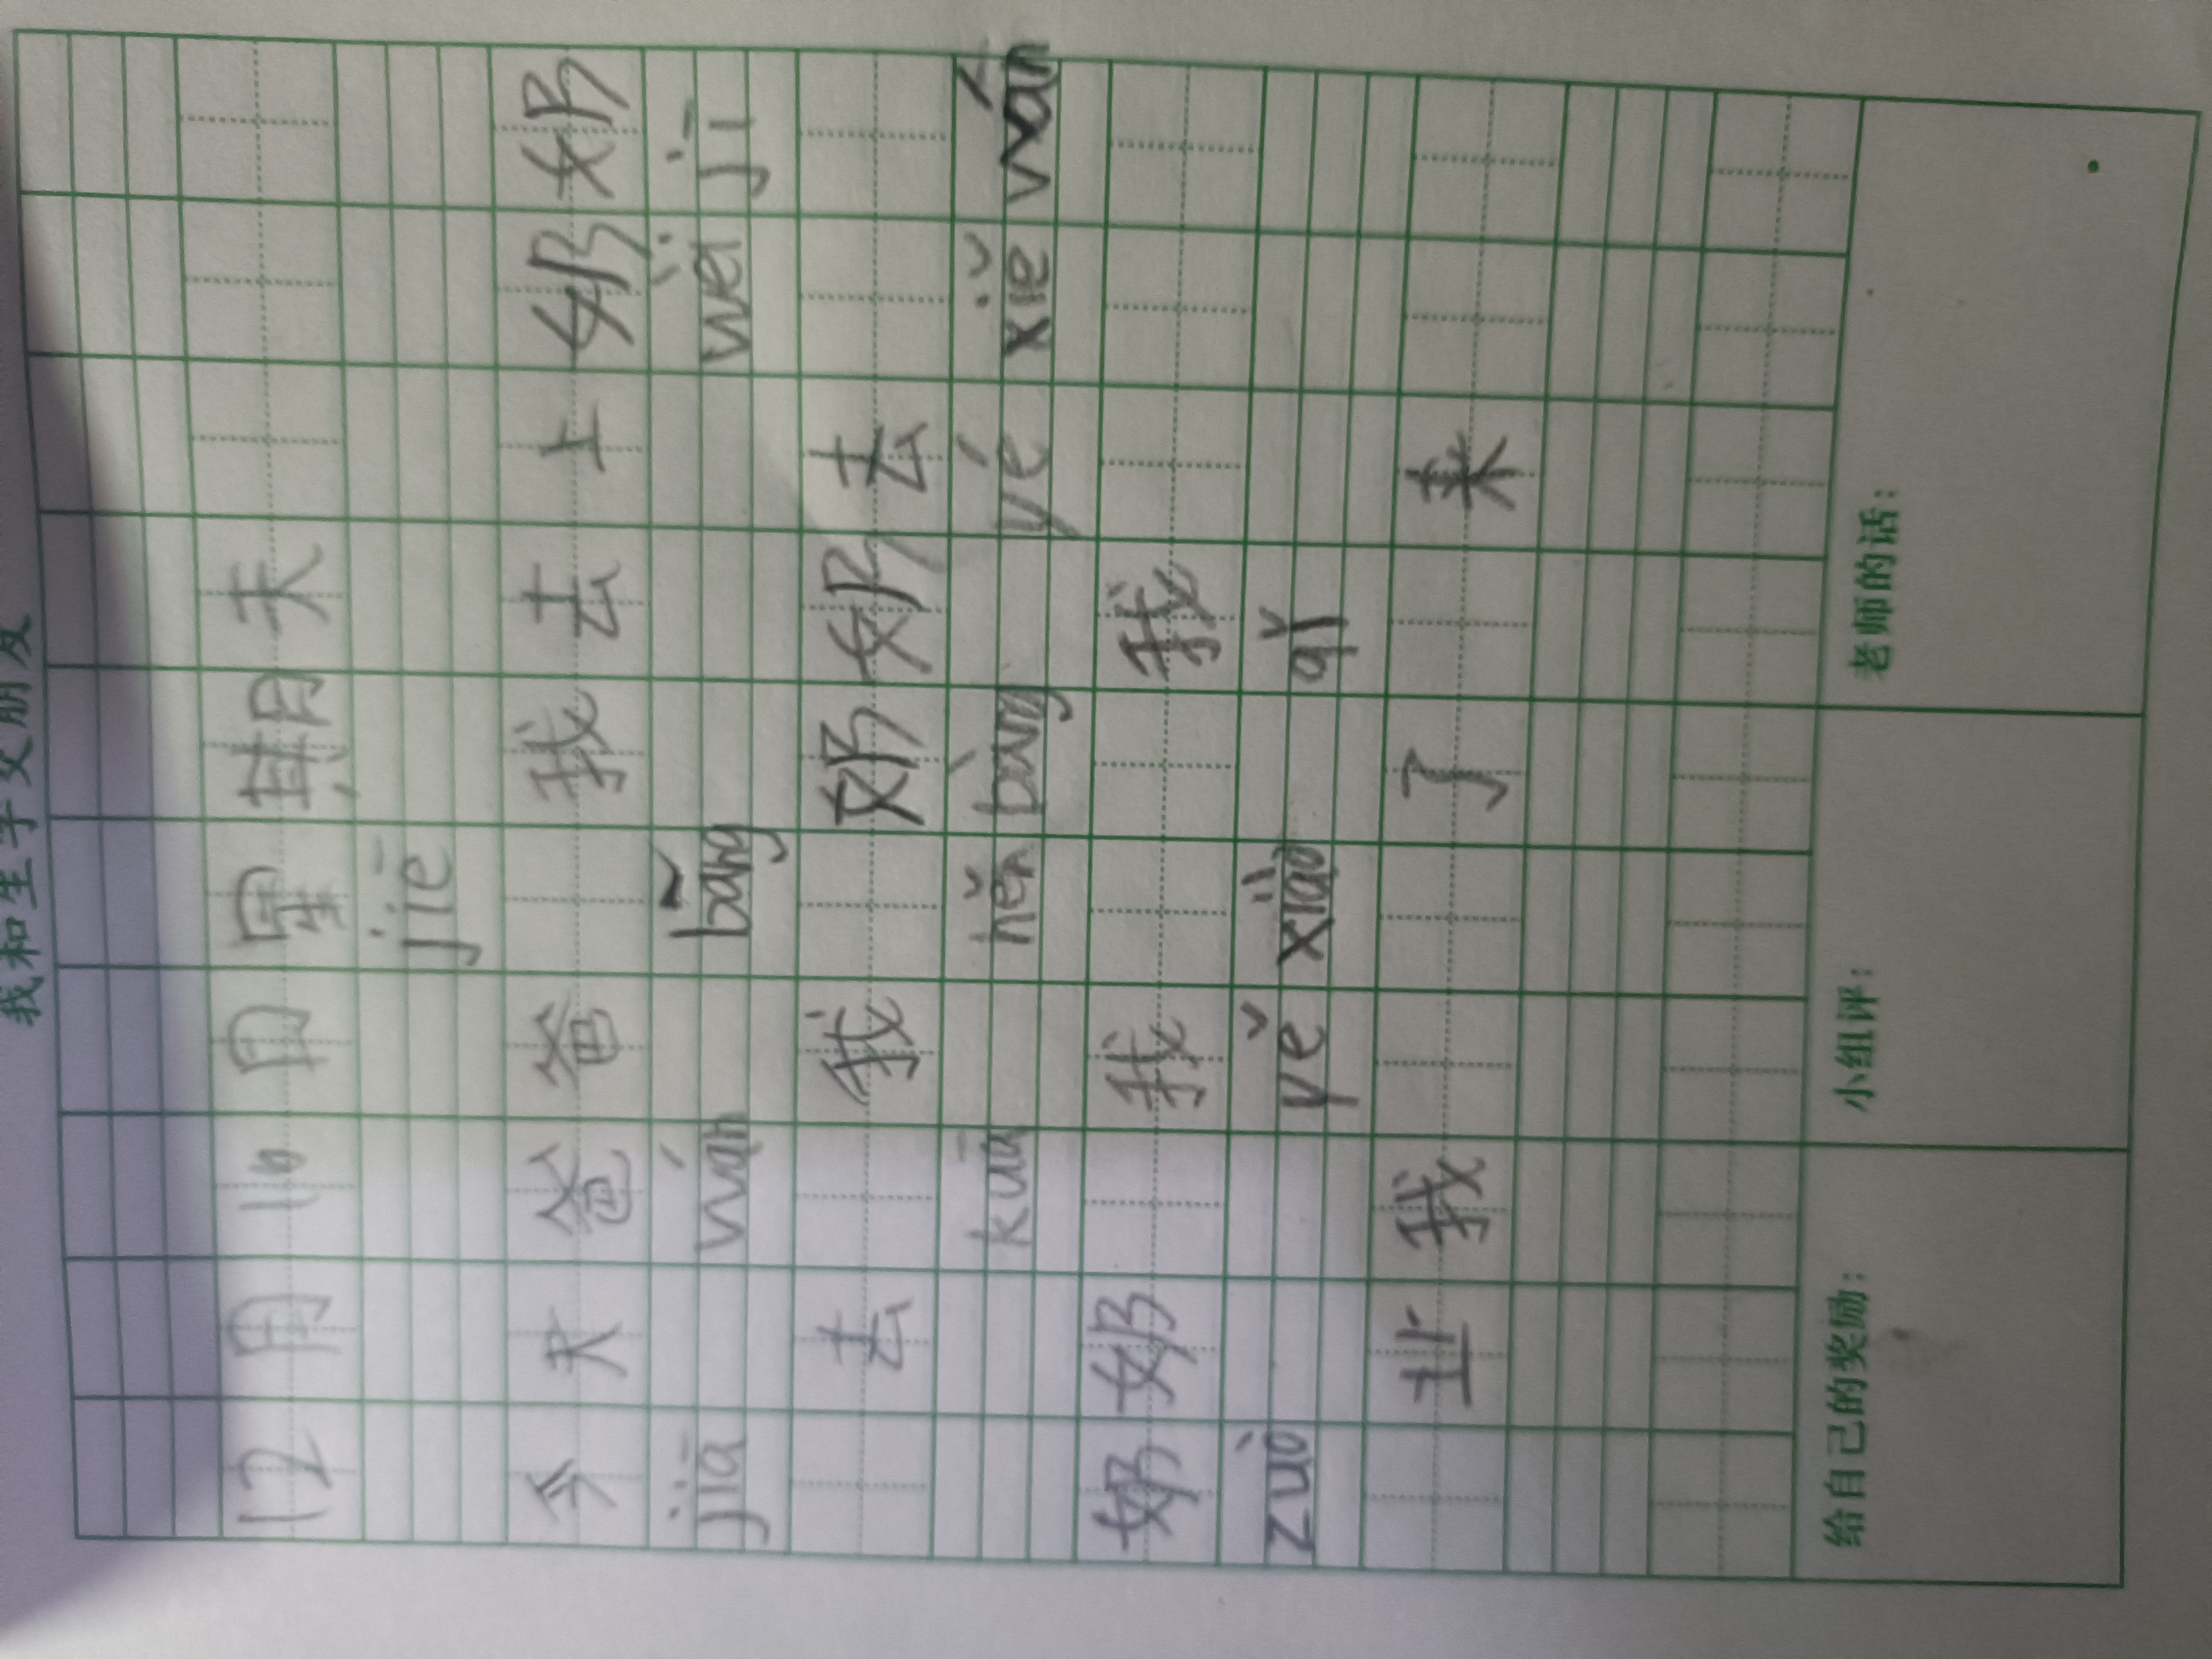 我和生字交朋友
12月16日星期天
jiē
今天爸爸我去上奶奶
jiā wán bāng wèi jī
去我奶奶去
kuā hěn bàng yé xiě wán
奶奶我我
zuò yě xiào qǐ
业我了来
给自己的奖励： 小组评： 老师的话：